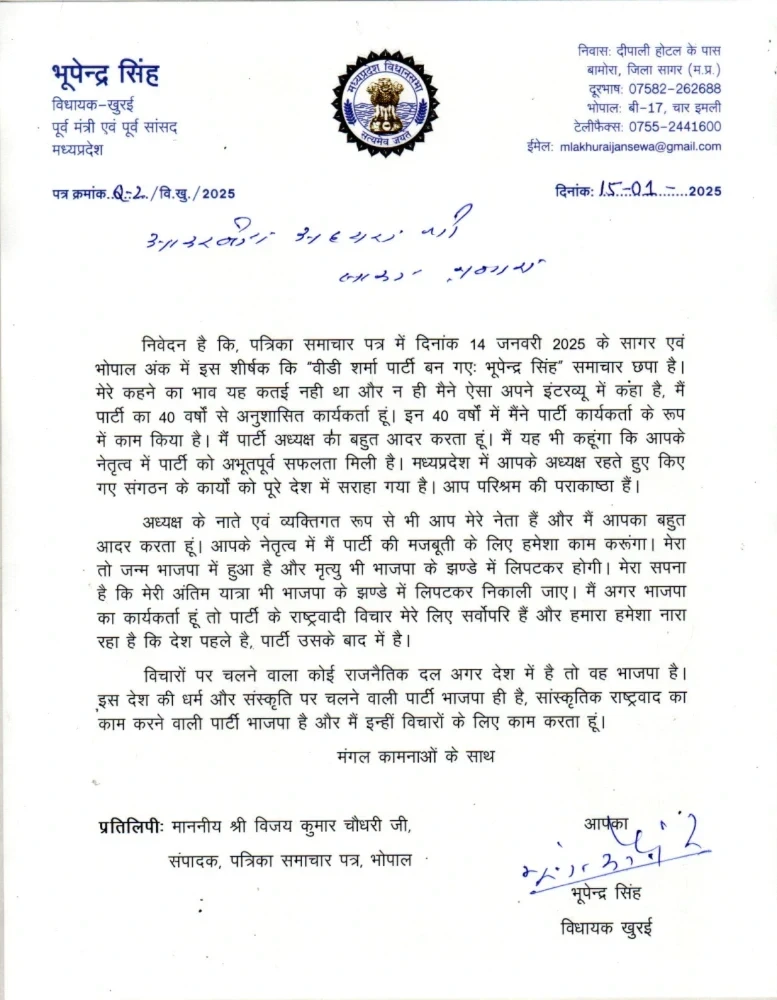 भूपेन्द्र सिंह
विधायक-खुरई
पूर्व मंत्री एवं पूर्व सांसद
मध्यप्रदेश
मध्यप्रदेश विधानसभा
सत्यमेव जयते
निवास: दीपाली होटल के पास
बामोरा, जिला सागर (म.प्र.)
दूरभाष: 07582-262688
भोपाल: बी-17, चार इमली
टेलीफैक्स: 0755-2441600
ईमेल: mlakhuraijansewa@gmail.com
पत्र क्रमांक.Q-2./वि.खु./2025
दिनांक: 15-01-2025
निवेदन है कि, पत्रिका समाचार पत्र में दिनांक 14 जनवरी 2025 के सागर एवं
भोपाल अंक में इस शीर्षक कि "वीडी शर्मा पार्टी बन गएः भूपेन्द्र सिंह" समाचार छपा है।
मेरे कहने का भाव यह कतई नही था और न ही मैने ऐसा अपने इंटरव्यू में कहा है, मैं
पार्टी का 40 वर्षो से अनुशासित कार्यकर्ता हूं। इन 40 वर्षो में मैंने पार्टी कार्यकर्ता के रूप
में काम किया है। मैं पार्टी अध्यक्ष का बहुत आदर करता हूं। मैं यह भी कहूंगा कि आपके
नेतृत्व में पार्टी को अभूतपूर्व सफलता मिली है। मध्यप्रदेश में आपके अध्यक्ष रहते हुए किए
गए संगठन के कार्यो को पूरे देश में सराहा गया है। आप परिश्रम की पराकाष्ठा हैं।
अध्यक्ष के नाते एवं व्यक्तिगत रूप से भी आप मेरे नेता हैं और मैं आपका बहुत
आदर करता हूं। आपके नेतृत्व में मैं पार्टी की मजबूती के लिए हमेशा काम करूंगा। मेरा
तो जन्म भाजपा में हुआ है और मृत्यु भी भाजपा के झण्डे में लिपटकर होगी। मेरा सपना
है कि मेरी अंतिम यात्रा भी भाजपा के झण्डे में लिपटकर निकाली जाए। मैं अगर भाजपा
का कार्यकर्ता हूं तो पार्टी के राष्ट्रवादी विचार मेरे लिए सर्वोपरि हैं और हमारा हमेशा नारा
रहा है कि देश पहले है, पार्टी उसके बाद में है।
विचारों पर चलने वाला कोई राजनैतिक दल अगर देश में है तो वह भाजपा है।
इस देश की धर्म और संस्कृति पर चलने वाली पार्टी भाजपा ही है, सांस्कृतिक राष्ट्रवाद का
काम करने वाली पार्टी भाजपा है और मैं इन्हीं विचारों के लिए काम करता हूं।
मंगल कामनाओं के साथ
प्रतिलिपीः माननीय श्री विजय कुमार चौधरी जी,
संपादक, पत्रिका समाचार पत्र, भोपाल
आपका
भूपेन्द्र सिंह
विधायक खुरई